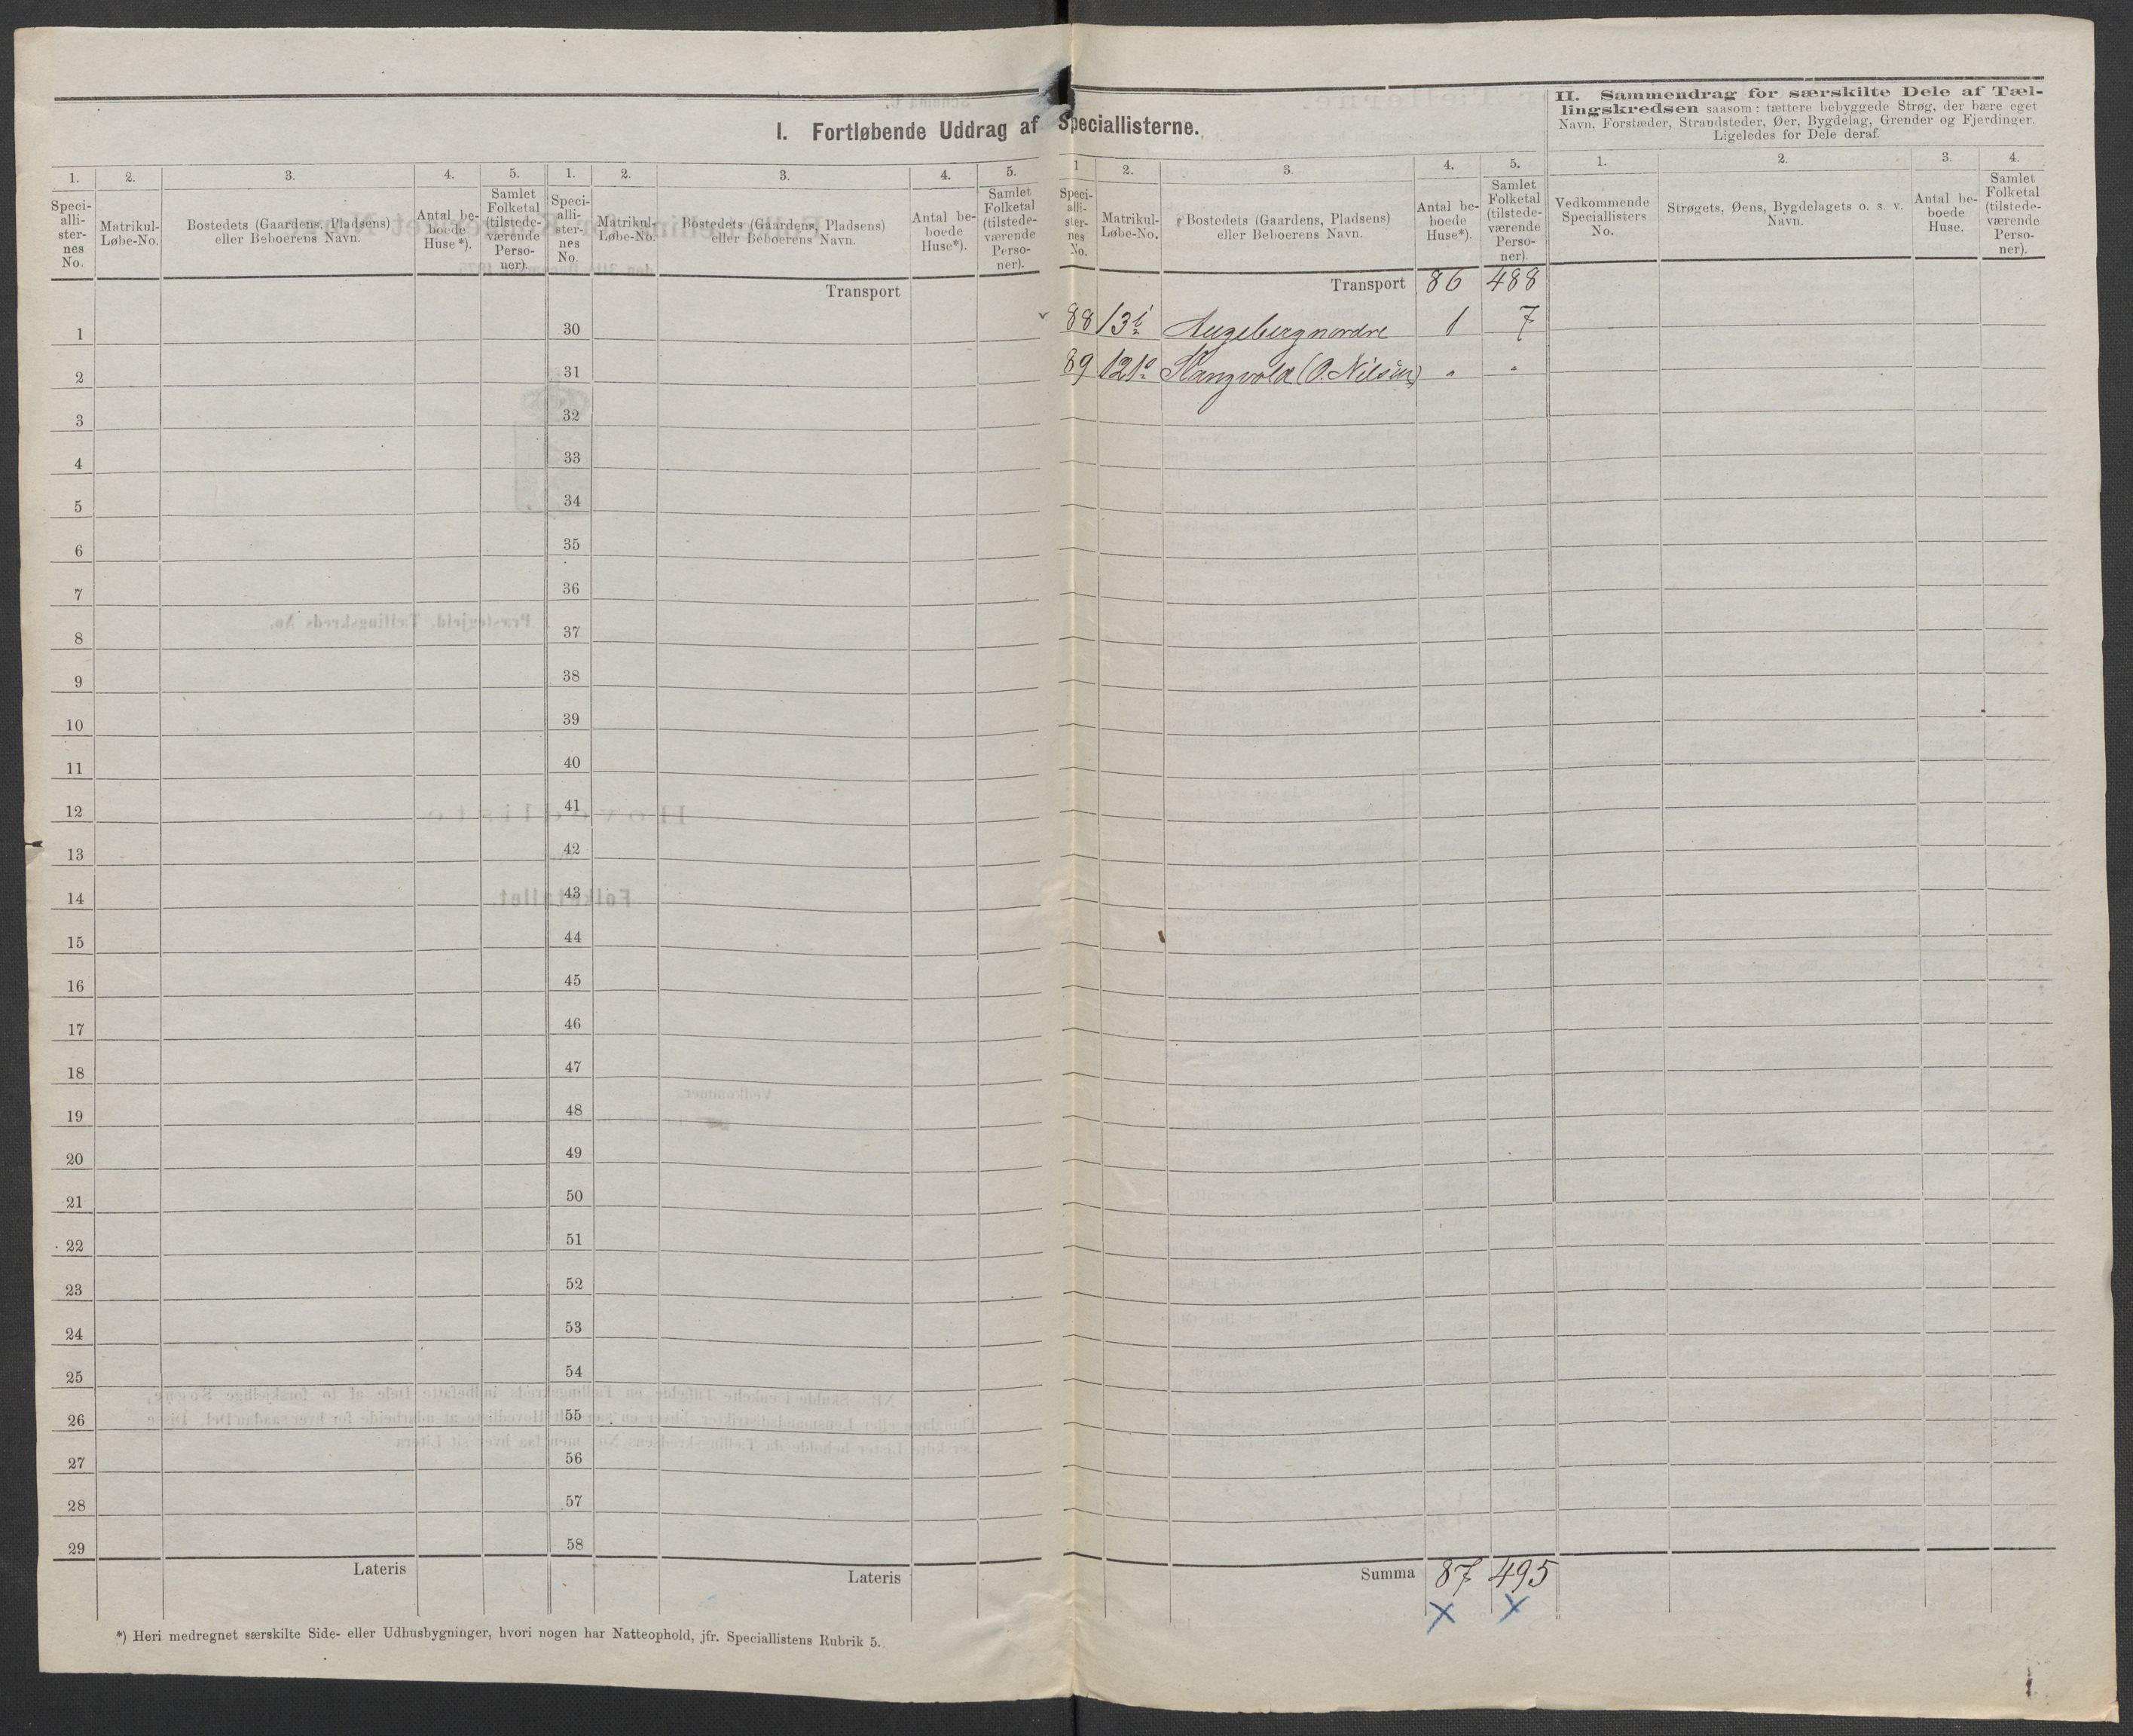 I. Fortløbende Uddrag af Speciallisterne.
1. 2. 3. 4. 5. 1. 2. 3. 4. 5.
Speci-alli-ster-nes No. Matrikul-Løbe-No. Bostedets (Gaardens, Pladsens) eller Beboerens Navn. Antal be-boede Huse*). Samlet Folketal (tilstede-værende Perso-ner).
Speci-alli-ster-nes No. Matrikul-Løbe-No. Bostedets (Gaardens, Pladsens) eller Beboerens Navn. Antal be-boede Huse*). Samlet Folketal (tilstede-værende Perso-ner).
Transport
1 30
2 31
3 32
4 33
5 34
6 35
7 36
8 37
9 38
10 39
11 40
12 41
13 42
14 43
15 44
16 45
17 46
18 47
19 48
20 49
21 50
22 51
23 52
24 53
25 54
26 55
27 56
28 57
29 58
Lateris Lateris
*) Heri medregnet særskilte Side- eller Udhusbygninger, hvori nogen har Natteophold, jfr. Speciallistens Rubrik 5.
1 2. 3. 4. 5.
Speci-alli-ster-nes No. Matrikul-Løbe-No. Bostedets (Gaardens, Pladsens) eller Beboerens Navn. Antal be-boede Huse*). Samlet Folketal (tilstede-værende Perso-ner).
Transport 86 488
88 nordre 1 7
89 (O. Nilsen) " "
Summa 87 495
X X
II. Sammendrag for særskilte Dele af Tæl-
lingskredsen saasom: tættere bebyggede Strøg, der bære eget
Navn, Forstæder, Strandsteder, Øer, Bygdelag, Grender og Fjerdinger.
Ligeledes for Dele deraf.
1. 2. 3. 4.
Vedkommende Speciallisters No. Strøgets, Øens, Bygdelagets o. s. v. Navn. Antal be-boede Huse. Samlet Folketal (tilstede-værende Perso-ner).